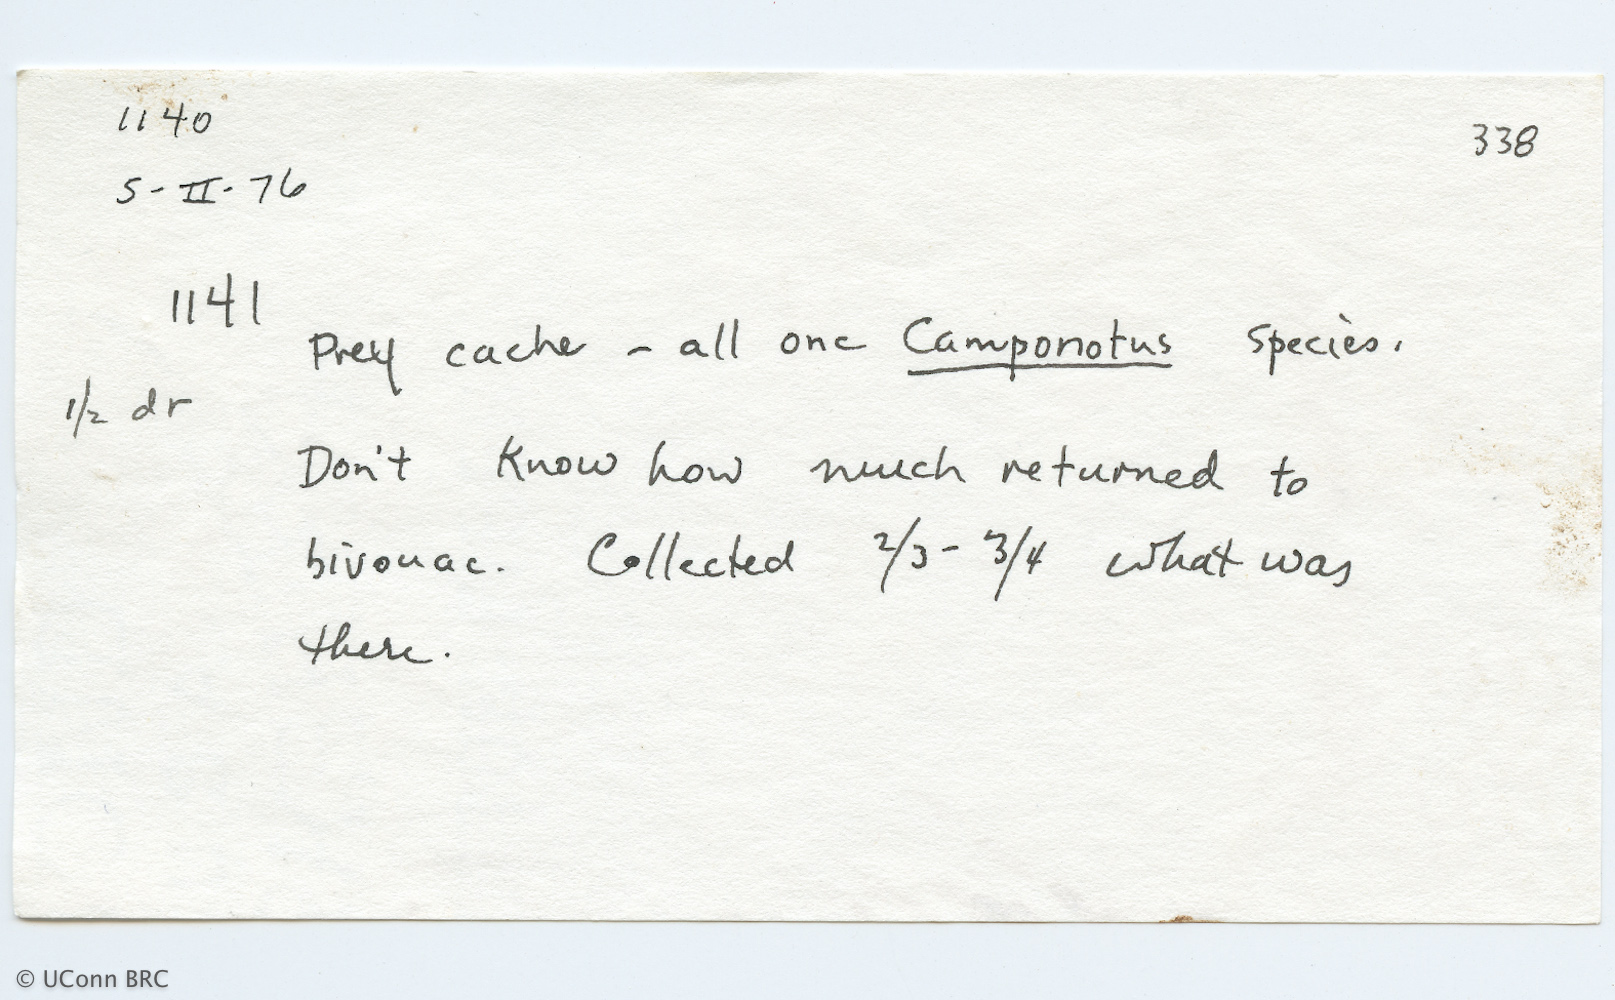 1140
338
5-II-76
1141
Prey cache - all one Camponotus species.
1/2 dr
Don't know how much returned to
bivouac. Collected 2/3 - 3/4 what was
there.
© UConn BRC